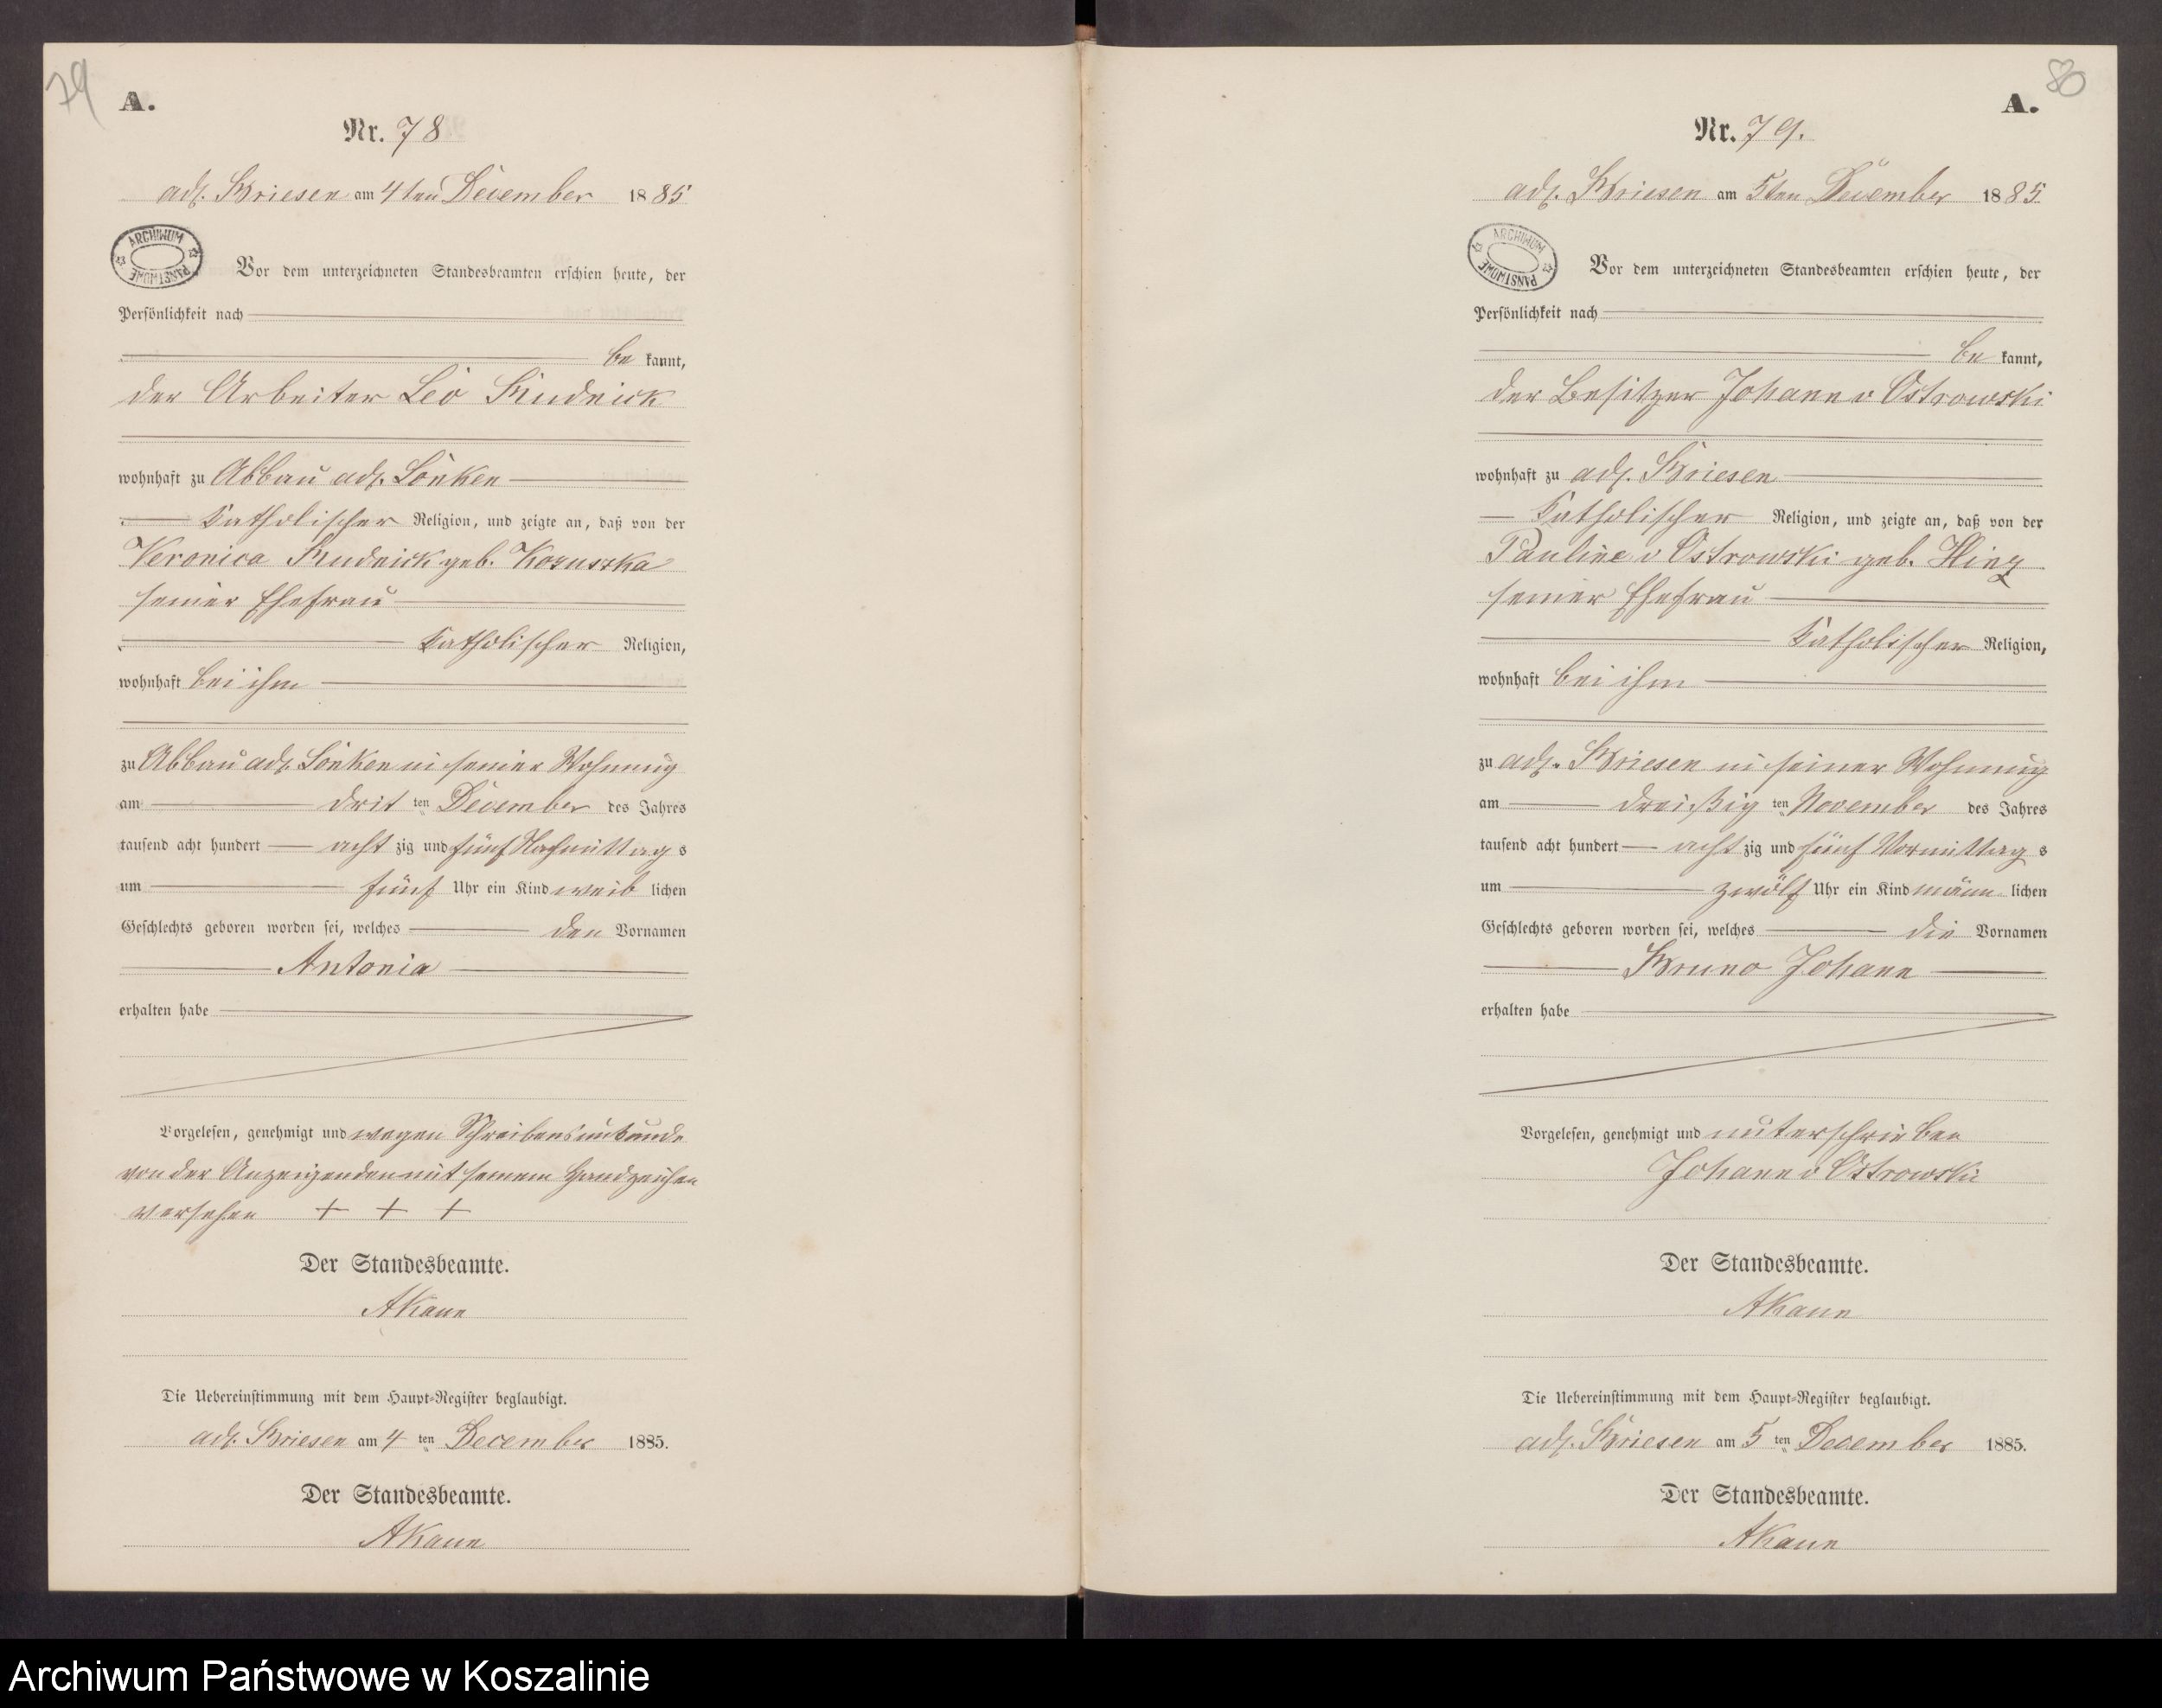 79
A.
Nr. 78
adl. Briesen am 4ten December 1885
ARCHIWUM PAŃSTWOWE
Vor dem unterzeichneten Standesbeamten erschien heute, der
Persönlichkeit nach
be kannt,
der Arbeiter Leo Rudnick
wohnhaft zu Abbau adl. Lonken
katholischer Religion, und zeigte an, daß von der
Veronica Rudnick geb. Kozuszka
seiner Ehefrau
katholischer Religion,
wohnhaft bei ihm
zu Abbau adl. Lonken in seiner Wohnung
am drit ten December des Jahres
tausend acht hundert acht zig und fünf Nachmittag s
um fünf Uhr ein Kind weib lichen
Geschlechts geboren worden sei, welches den Vornamen
Antonia
erhalten habe
Vorgelesen, genehmigt und wegen Schreibensunkunde
von der Anzeigenden mit seinem Handzeichen
versehen + + +
Der Standesbeamte.
AKaun
Die Uebereinstimmung mit dem Haupt-Register beglaubigt.
adl. Briesen am 4 ten December 1885.
Der Standesbeamte.
AKaun
80
A.
Nr. 79.
adl. Briesen am 5ten December 1885.
ARCHIWUM PAŃSTWOWE
Vor dem unterzeichneten Standesbeamten erschien heute, der
Persönlichkeit nach
be kannt,
der Besitzer Johann v Ostrowski
wohnhaft zu adl. Briesen
katholischer Religion, und zeigte an, daß von der
Pauline v Ostrowski geb. Hinz
seiner Ehefrau
katholischer Religion,
wohnhaft bei ihm
zu adl. Briesen in seiner Wohnung
am dreißig ten November des Jahres
tausend acht hundert acht zig und fünf Vormittag s
um zwölf Uhr ein Kind männ lichen
Geschlechts geboren worden sei, welches die Vornamen
Bruno Johann
erhalten habe
Vorgelesen, genehmigt und unterschrieben
Johann v Ostrowski
Der Standesbeamte.
AKaun
Die Uebereinstimmung mit dem Haupt-Register beglaubigt.
adl. Briesen am 5 ten December 1885.
Der Standesbeamte.
AKaun
Archiwum Państwowe w Koszalinie